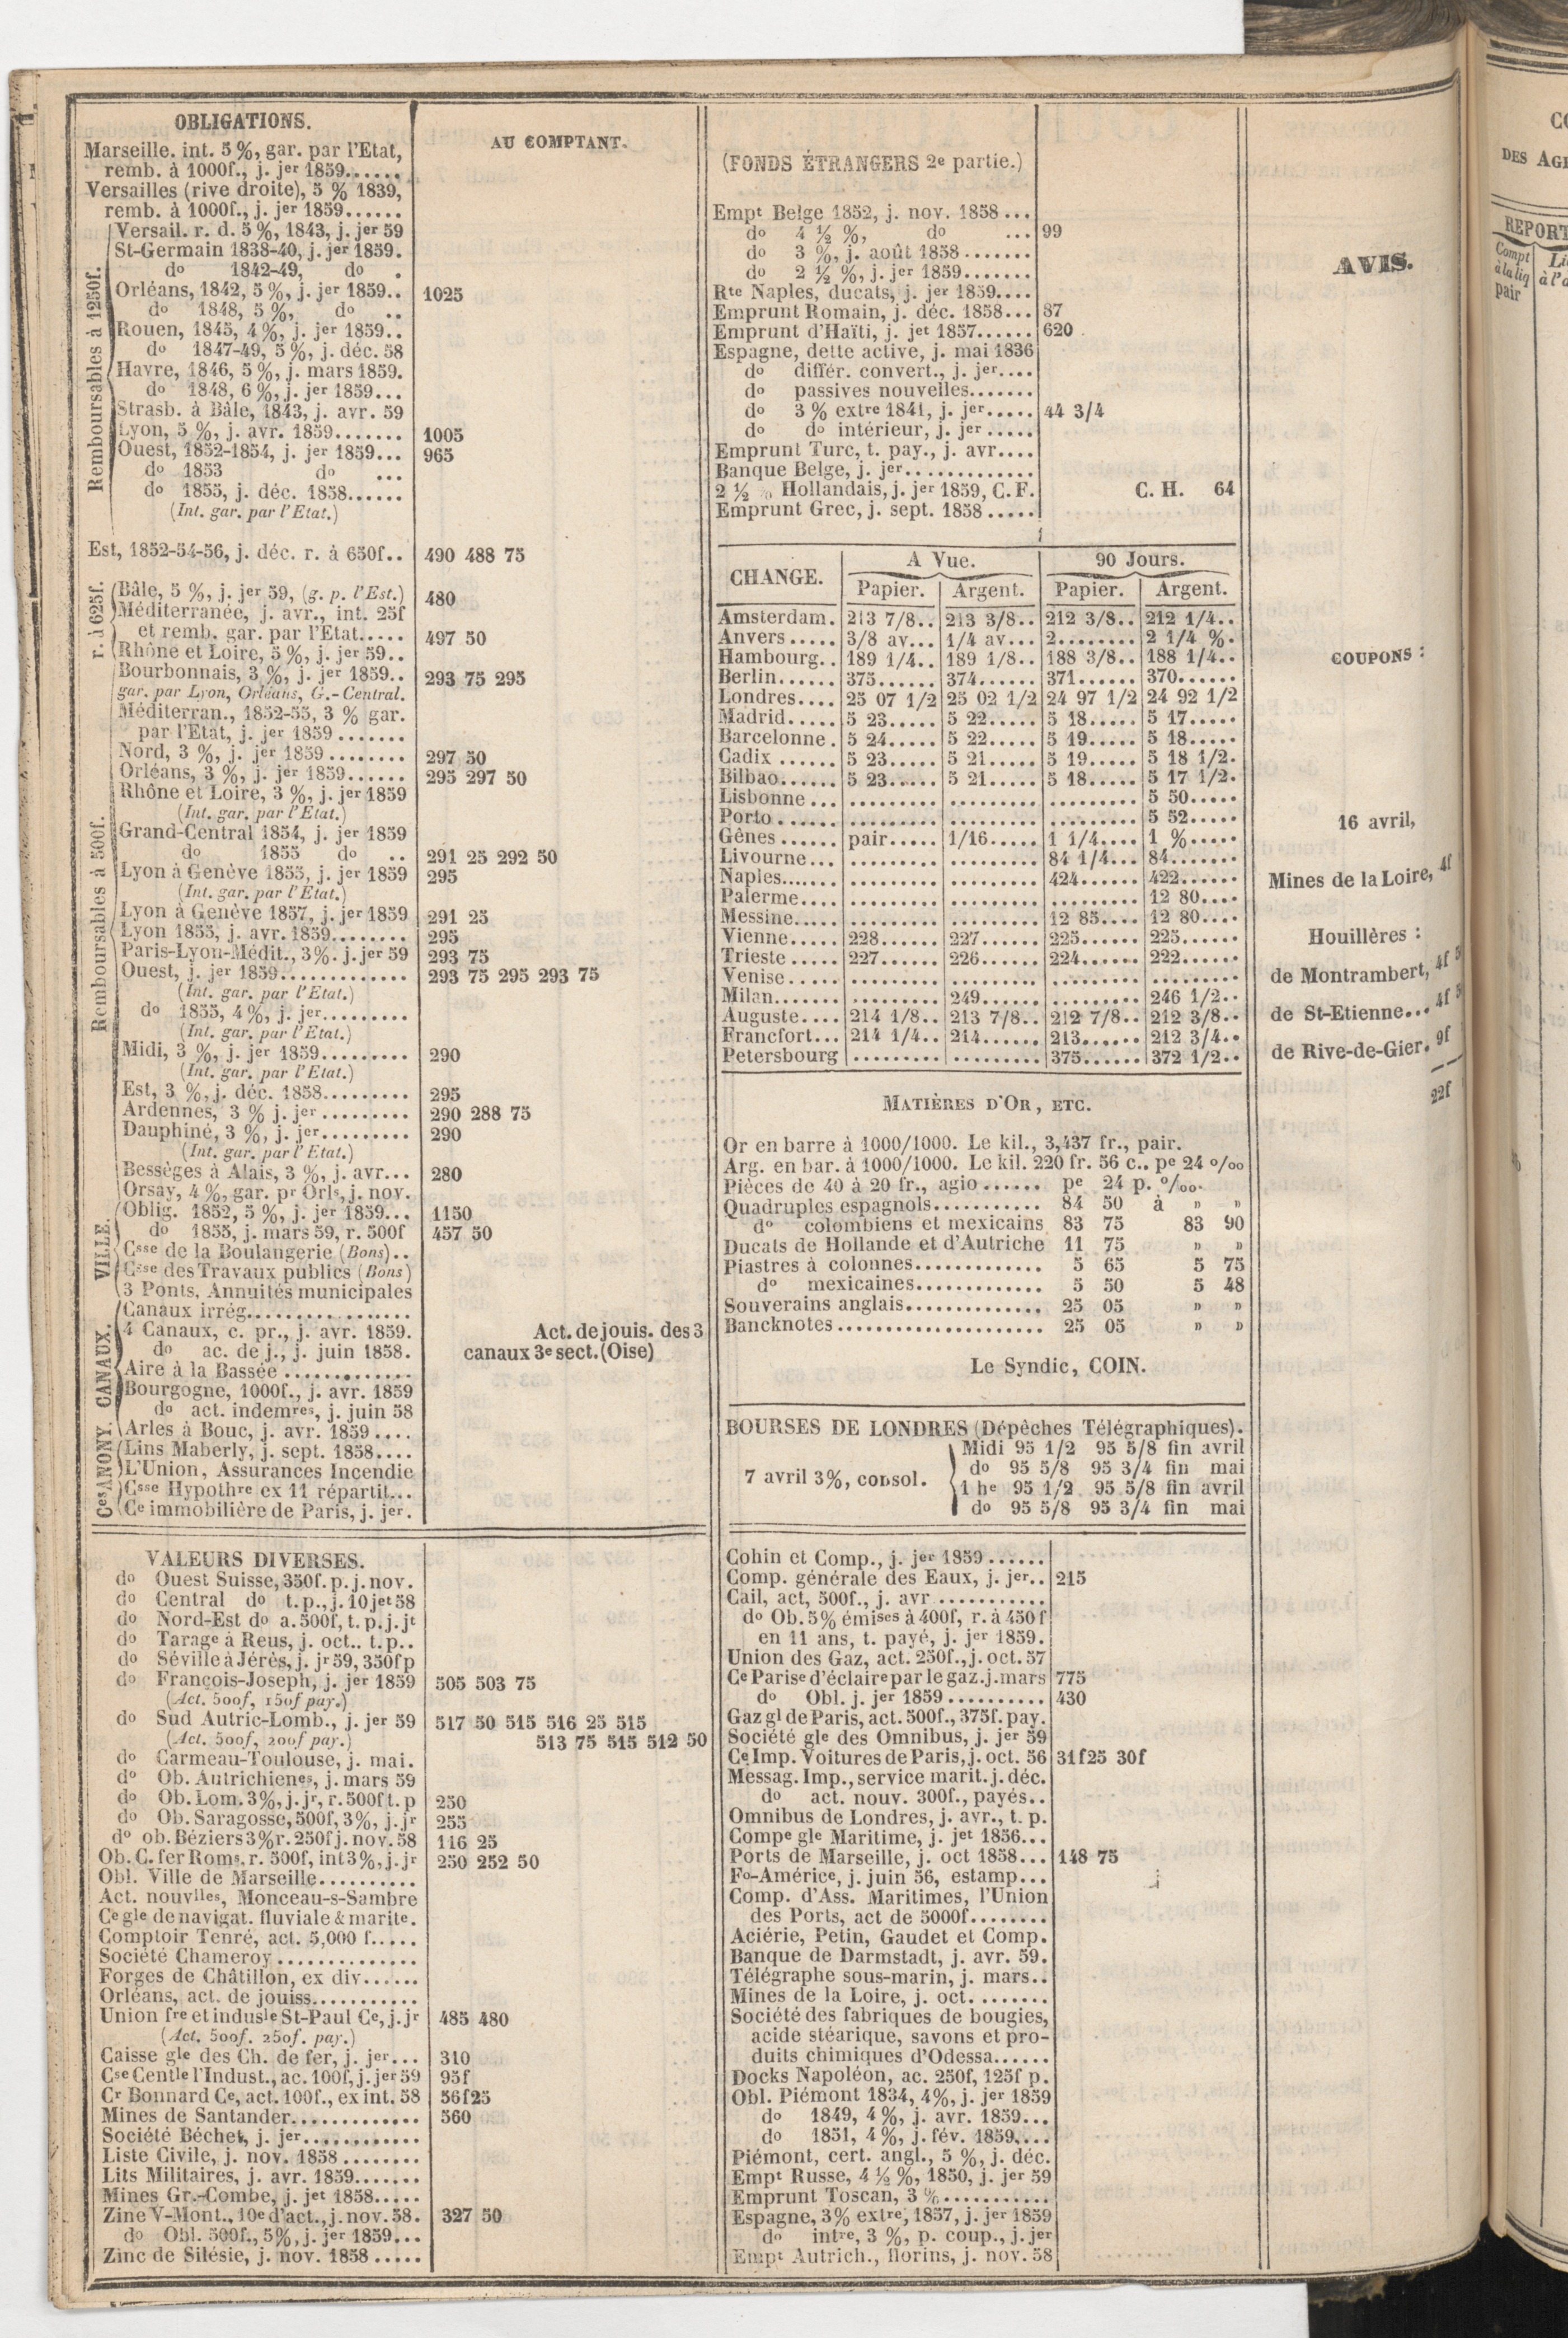 OBLIGATIONS.
AU COMPTANT.
Marseille. int. 5 %, gar. par l'Etat,
remb. à 1000f., j. jer 1859......
Versailles (rive droite), 5 % 1839,
remb. à 1000f., j. jer 1859......
Remboursables à 1250f.
Versail. r. d. 5 %, 1843, j. jer 59
St-Germain 1838-40, j. jer 1859.
do 1842-49, do .
Orléans, 1842, 5 %, j. jer 1859.. 1025
do 1848, 5 %, do ..
Rouen, 1845, 4 %, j. jer 1859..
do 1847-49, 5 %, j. déc. 58
Havre, 1846, 5 %, j. mars 1859.
do 1848, 6 %, j. jer 1859...
Strasb. à Bâle, 1843, j. avr. 59
Lyon, 5 %, j. avr. 1859....... 1005
Ouest, 1852-1854, j. jer 1859... 965
do 1853 do ...
do 1855, j. déc. 1858......
(Int. gar. par l'Etat.)
Est, 1852-54-56, j. déc. r. à 650f.. 490 488 75
r. à 625f.
Bâle, 5 %, j. jer 59, (g. p. l'Est.) 480
Méditerranée, j. avr., int. 25f
et remb. gar. par l'Etat..... 497 50
Rhône et Loire, 5 %, j. jer 59..
Remboursables à 500f.
Bourbonnais, 3 %, j. jer 1859.. 293 75 295
gar. par Lyon, Orléans, G.-Central.
Méditerran., 1852-55, 3 % gar.
par l'Etat, j. jer 1859 .......
Nord, 3 %, j. jer 1859 ........ 297 50
Orléans, 3 %, j. jer 1859...... 295 297 50
Rhône et Loire, 3 %, j. jer 1859
(Int. gar. par l'Etat.)
Grand-Central 1854, j. jer 1859
do 1855 do .. 291 25 292 50
Lyon à Genève 1855, j. jer 1859 295
(Int. gar. par l'Etat.)
Lyon à Genève 1857, j. jer 1859 291 25
Lyon 1855, j. avr. 1859........ 295
Paris-Lyon-Médit., 3%. j. jer 59 293 75
Ouest, j. jer 1859............. 293 75 295 293 75
(Int. gar. par l'Etat.)
do 1855, 4 %, j. jer.........
(Int. gar. par l'Etat.)
Midi, 3 %, j. jer 1859......... 290
(Int. gar. par l'Etat.)
Est, 3 %, j. déc. 1858......... 295
Ardennes, 3 % j. jer ......... 290 288 75
Dauphiné, 3 %, j. jer......... 290
(Int. gar. par l'Etat.)
Bessèges à Alais, 3 %, j. avr... 280
Orsay, 4 %, gar. pr Orls, j. nov.
VILLE.
Oblig. 1852, 5 %, j. jer 1859... 1150
do 1855, j. mars 59, r. 500f 457 50
Csse de la Boulangerie (Bons)..
Csse des Travaux publics (Bons)
3 Ponts, Annuités municipales
CANAUX.
Canaux irrég.................
4 Canaux, c. pr., j. avr. 1859. Act. de jouis. des 3
do ac. de j., j. juin 1858. canaux 3e sect. (Oise)
Aire à la Bassée .............
Bourgogne, 1000f., j. avr. 1859
do act. indemres, j. juin 58
Arles à Bouc, j. avr. 1859 ....
Ces ANONY.
Lins Maberly, j. sept. 1858....
L'Union, Assurances Incendie
Csse Hypothre ex 11 répartit...
Ce immobilière de Paris, j. jer.
VALEURS DIVERSES.
do Ouest Suisse, 350f. p. j. nov.
do Central do t. p., j. 10 jet 58
do Nord-Est do a. 500f, t. p. j. jt
do Tarage à Reus, j. oct.. t. p..
do Séville à Jérès, j. jr 59, 350f p
do François-Joseph, j. jer 1859 505 503 75
(Act. 500f, 150f pay.)
do Sud Autric-Lomb., j. jer 59 517 50 515 516 25 515
(Act. 500f, 200f pay.) 513 75 515 512 50
do Carmeau-Toulouse, j. mai.
do Ob. Autrichienes, j. mars 59
do Ob. Lom. 3%, j. jr, r. 500f t. p 250
do Ob. Saragosse, 500f, 3%, j. jr 255
do ob. Béziers 3% r. 250f j. nov. 58 116 25
Ob. C. fer Roms. r. 500f, int 3%, j. jr 250 252 50
Obl. Ville de Marseille..........
Act. nouvlles, Monceau-s-Sambre
Ce gle de navigat. fluviale & marite.
Comptoir Tenré, act. 5,000 f.....
Société Chameroy ..............
Forges de Châtillon, ex div......
Orléans, act. de jouiss...........
Union fre et indusle St-Paul Ce, j. jr 485 480
(Act. 500f. 250f. pay.)
Caisse gle des Ch. de fer, j. jer... 310
Cse Centle l'Indust., ac. 100f, j. jer 59 95f
Cr Bonnard Ce, act. 100f., ex int. 58 56f25
Mines de Santander............. 560
Société Béchet, j. jer............
Liste Civile, j. nov. 1858 ........
Lits Militaires, j. avr. 1859.......
Mines Gr.-Combe, j. jet 1858.....
Zinc V-Mont., 10e d'act., j. nov. 58. 327 50
do Obl. 500f., 5%, j. jer 1859...
Zinc de Silésie, j. nov. 1858 .....
(FONDS ÉTRANGERS 2e partie.)
Empt Belge 1852, j. nov. 1858 ...
do 4 ½ %, do ... 99
do 3 %, j. août 1858 .......
do 2 ½ %, j. jer 1859.......
Rte Naples, ducats, j. jer 1859....
Emprunt Romain, j. déc. 1858... 87
Emprunt d'Haïti, j. jet 1857...... 620
Espagne, dette active, j. mai 1836
do différ. convert., j. jer....
do passives nouvelles.......
do 3 % extre 1841, j. jer..... 44 3/4
do do intérieur, j. jer .....
Emprunt Turc, t. pay., j. avr....
Banque Belge, j. jer.............
2 ½ % Hollandais, j. jer 1859, C. F. C. H. 64
Emprunt Grec, j. sept. 1858 .....
CHANGE. A Vue. 90 Jours.
Papier. Argent. Papier. Argent.
Amsterdam. 213 7/8.. 213 3/8.. 212 3/8.. 212 1/4..
Anvers ..... 3/8 av... 1/4 av... 2......... 2 1/4 %.
Hambourg.. 189 1/4.. 189 1/8.. 188 3/8.. 188 1/4..
Berlin...... 375...... 374...... 371...... 370......
Londres.... 25 07 1/2 25 02 1/2 24 97 1/2 24 92 1/2
Madrid..... 5 23..... 5 22..... 5 18..... 5 17.....
Barcelonne. 5 24..... 5 22..... 5 19..... 5 18.....
Cadix ...... 5 23..... 5 21..... 5 19..... 5 18 1/2.
Bilbao...... 5 23..... 5 21..... 5 18..... 5 17 1/2.
Lisbonne ... ......... ......... ......... 5 50.....
Porto ...... ......... ......... ......... 5 52.....
Gênes ...... pair..... 1/16..... 1 1/4.... 1 %.....
Livourne... ......... ......... 84 1/4... 84.......
Naples....... ......... ......... 424...... 422......
Palerme.... ......... ......... ......... 12 80....
Messine..... ......... ......... 12 85.... 12 80....
Vienne..... 228...... 227...... 225...... 225......
Trieste ..... 227...... 226...... 224...... 222......
Venise ..... ......... ......... ......... .........
Milan....... ......... 249...... ......... 246 1/2..
Auguste.... 214 1/8.. 213 7/8.. 212 7/8.. 212 3/8..
Francfort... 214 1/4.. 214...... 213...... 212 3/4..
Petersbourg ......... ......... 375...... 372 1/2..
MATIÈRES D'OR, ETC.
Or en barre à 1000/1000. Le kil., 3,437 fr., pair.
Arg. en bar. à 1000/1000. Le kil. 220 fr. 56 c.. pe 24 o/oo
Pièces de 40 à 20 fr., agio ...... pe 24 p. o/oo.
Quadruples espagnols........... 84 50 à » »
do colombiens et mexicains 83 75 83 90
Ducats de Hollande et d'Autriche 11 75 » »
Piastres à colonnes............. 5 65 5 75
do mexicaines............. 5 50 5 48
Souverains anglais.............. 25 05 » »
Bancknotes ..................... 25 05 » »
Le Syndic, COIN.
BOURSES DE LONDRES (Dépêches Télégraphiques).
7 avril 3%, consol.
Midi 95 1/2 95 5/8 fin avril
do 95 5/8 95 3/4 fin mai
1 he 95 1/2 95 5/8 fin avril
do 95 5/8 95 3/4 fin mai
Cohin et Comp., j. jer 1859 ......
Comp. générale des Eaux, j. jer.. 215
Cail, act, 500f., j. avr ...........
do Ob. 5% émises à 400f, r. à 450 f
en 11 ans, t. payé, j. jer 1859.
Union des Gaz, act. 250f., j. oct. 57
Ce Parise d'éclaire par le gaz. j. mars 775
do Obl. j. jer 1859 .......... 430
Gaz gl de Paris, act. 500f., 375f. pay.
Société gle des Omnibus, j. jer 59
Ce Imp. Voitures de Paris, j. oct. 56 31f25 30f
Messag. Imp., service marit. j. déc.
do act. nouv. 300f., payés..
Omnibus de Londres, j. avr., t. p.
Compe gle Maritime, j. jet 1856...
Ports de Marseille, j. oct 1858... 148 75
Fo-Américe, j. juin 56, estamp...
Comp. d'Ass. Maritimes, l'Union
des Ports, act de 5000f........
Aciérie, Petin, Gaudet et Comp.
Banque de Darmstadt, j. avr. 59.
Télégraphe sous-marin, j. mars..
Mines de la Loire, j. oct. ........
Société des fabriques de bougies,
acide stéarique, savons et pro-
duits chimiques d'Odessa......
Docks Napoléon, ac. 250f, 125f p.
Obl. Piémont 1834, 4%, j. jer 1859
do 1849, 4 %, j. avr. 1859...
do 1851, 4 %, j. fév. 1859....
Piémont, cert. angl., 5 %, j. déc.
Empt Russe, 4 ½ %, 1850, j. jer 59
Emprunt Toscan, 3 %...........
Espagne, 3% extre, 1857, j. jer 1859
do intre, 3 %, p. coup., j. jer
Empt Autrich., florins, j. nov. 58
AVIS.
COUPONS :
16 avril,
Mines de la Loire, 4f
Houillères :
de Montrambert, 4f 5
de St-Etienne... 4f 5
de Rive-de-Gier. 9f
22f
DES AG
REPORT
Compt
à la liq
pair